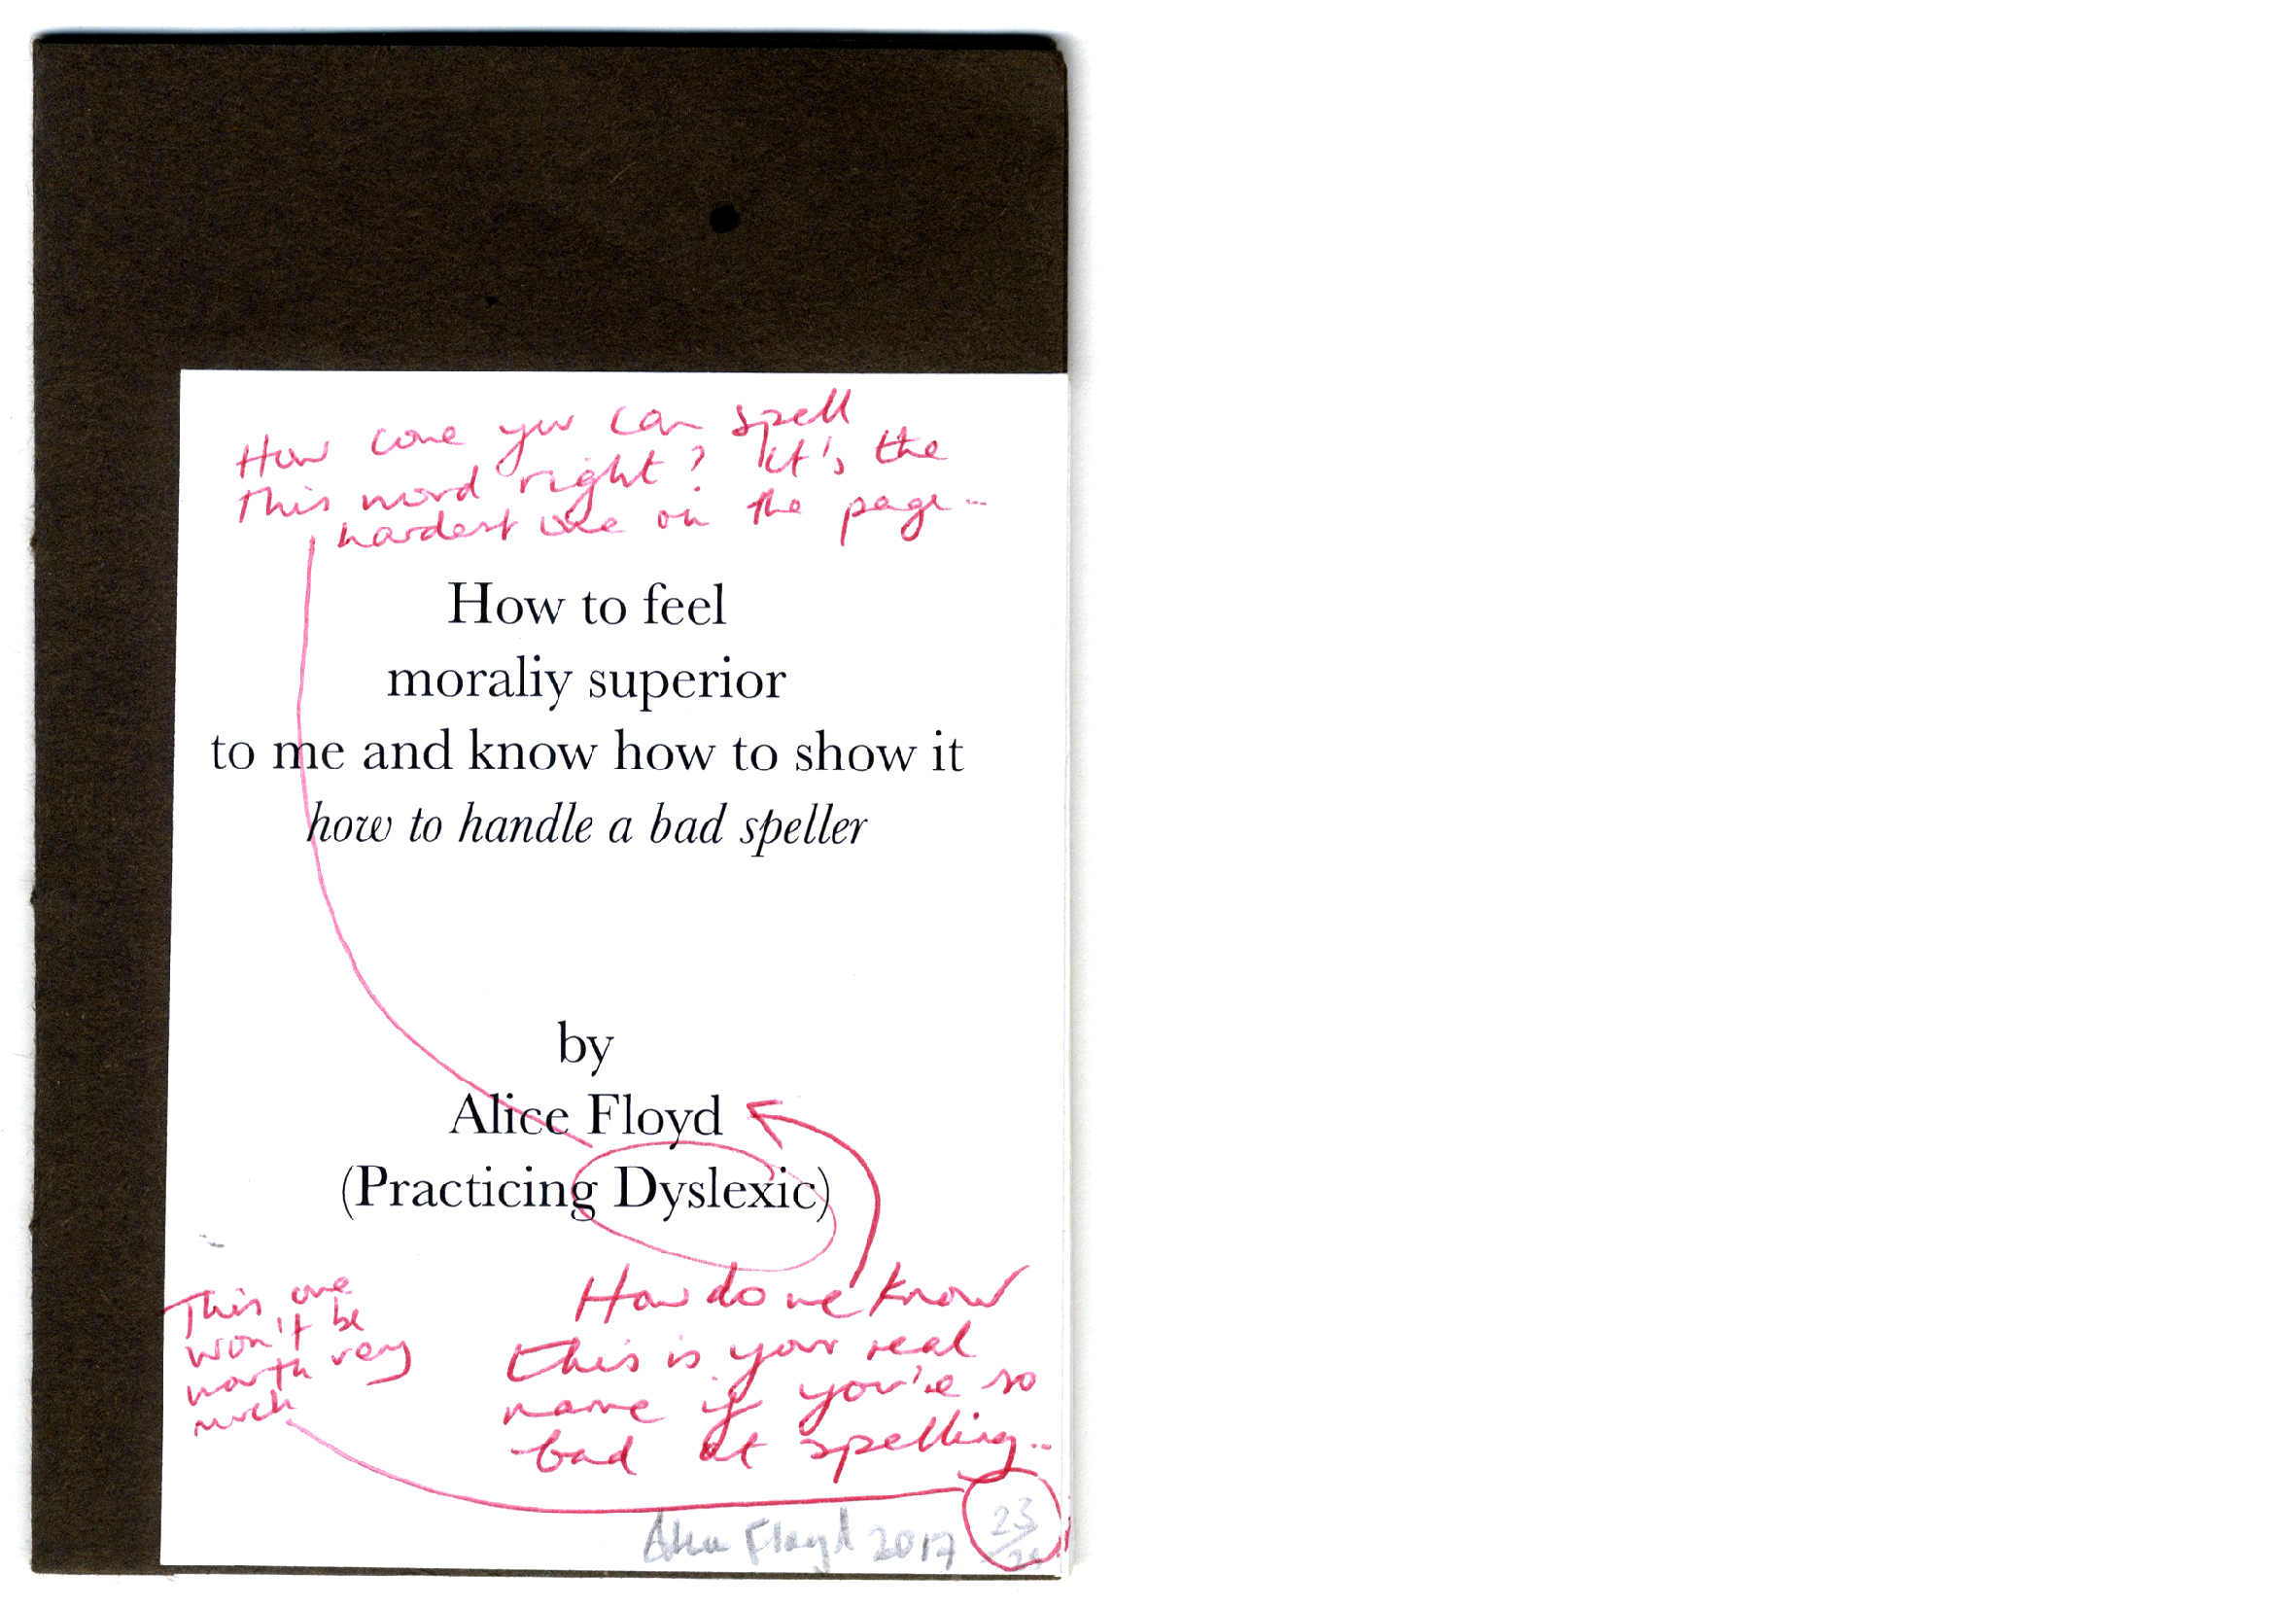 How come you can spell
this word right? It's the
hardest one on the page...
How to feel
moraliy superior
to me and know how to show it
how to handle a bad speller
by
Alice Floyd
(Practicing Dyslexic)
This one
won't be
worth very
much
How do we know
this is your real
name if you're so
bad at spelling..
Alice Floyd 2017
23